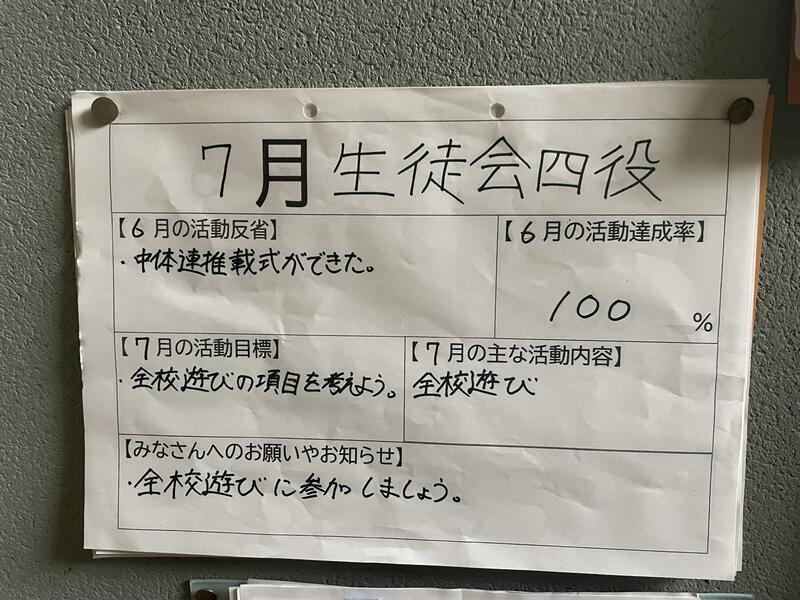 7月生徒会四役
【6月の活動反省】
・中体連推載式ができた。
【6月の活動達成率】
100
%
【7月の活動目標】
・全校遊びの項目を考えよう。
【7月の主な活動内容】
全校遊び
【みなさんへのお願いやお知らせ】
・全校遊びに参加しましょう。